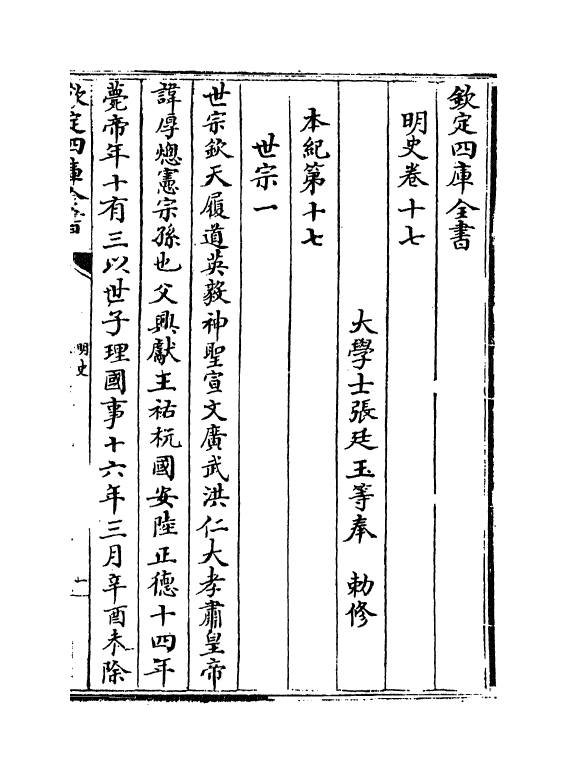 欽定四庫全書
明史卷十七
大學士張廷玉等奉　勅修
本紀第十七
世宗一
世宗欽天履道英毅神聖宣文廣武洪仁大孝肅皇帝
諱厚熜憲宗孫也父興獻王祐杬國安陸正德十四年
薨帝年十有三以世子理國事十六年三月辛酉未除
欽定四庫全書
明史
一